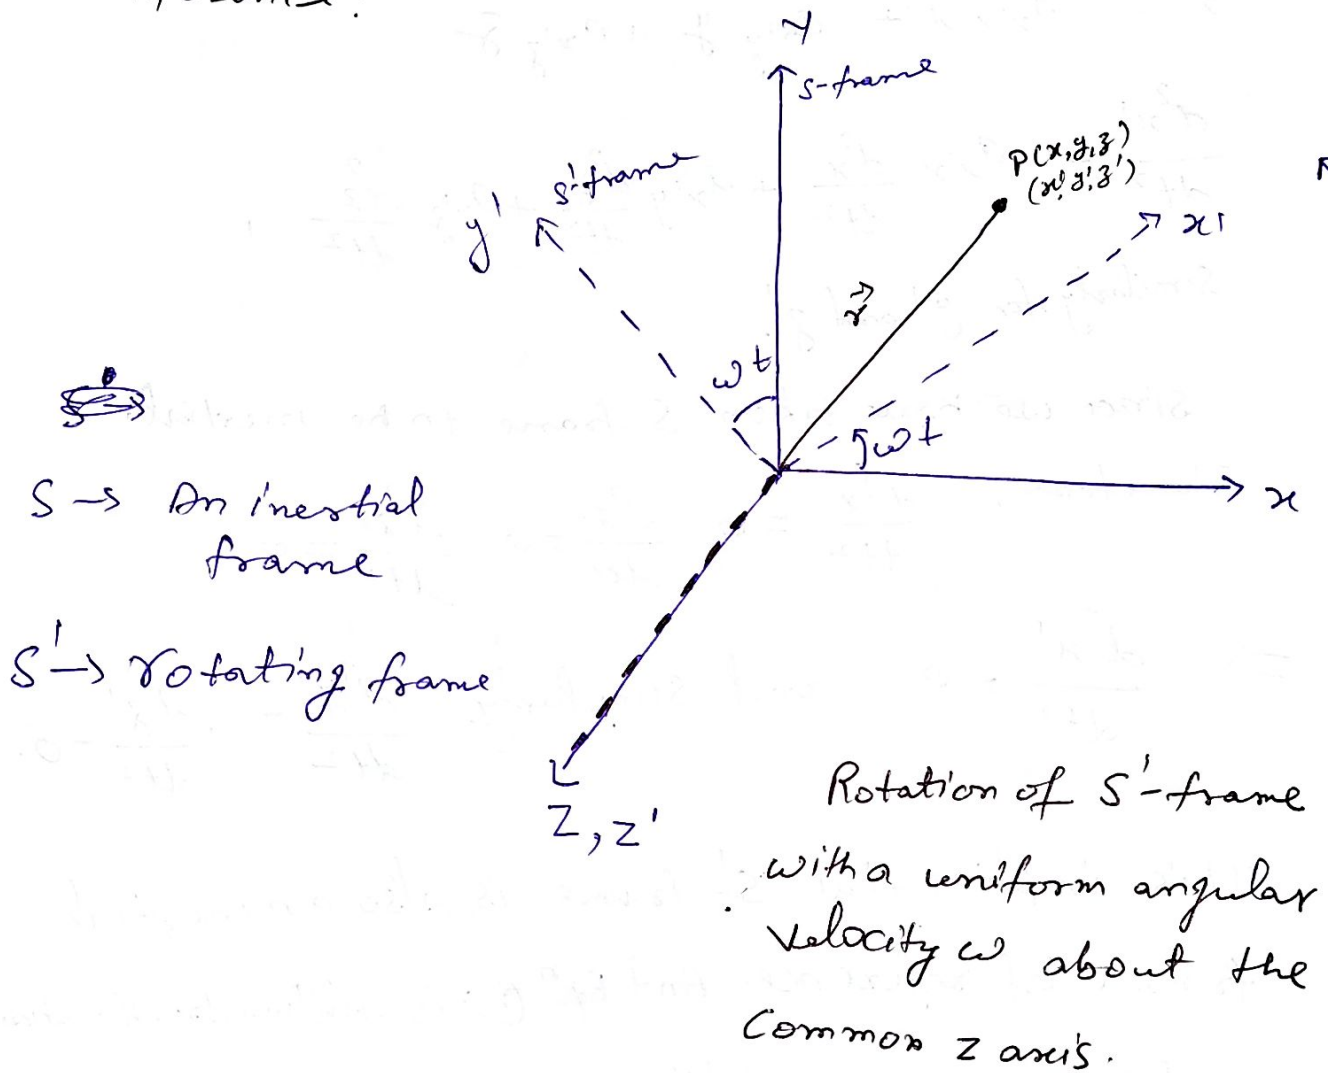 Y
S-frame
P(x,y,z)
(x',y',z')
S'-frame
y'
x'
r⃗
ωt
ωt
x
S → An inertial
frame
S' → rotating frame
Z, Z'
Rotation of S'-frame
with a uniform angular
velocity ω about the
Common Z axis.